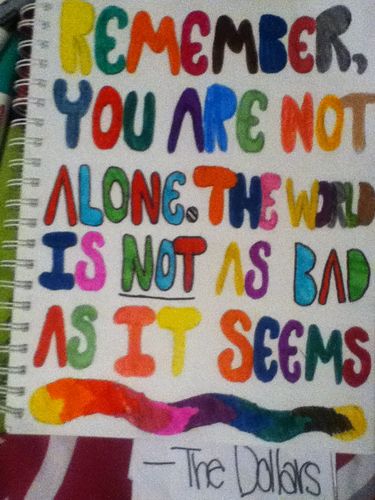 REMEMBER,
YOU ARE NOT
ALONE. THE WORLD
IS NOT AS BAD
AS IT SEEMS
—The Dollars